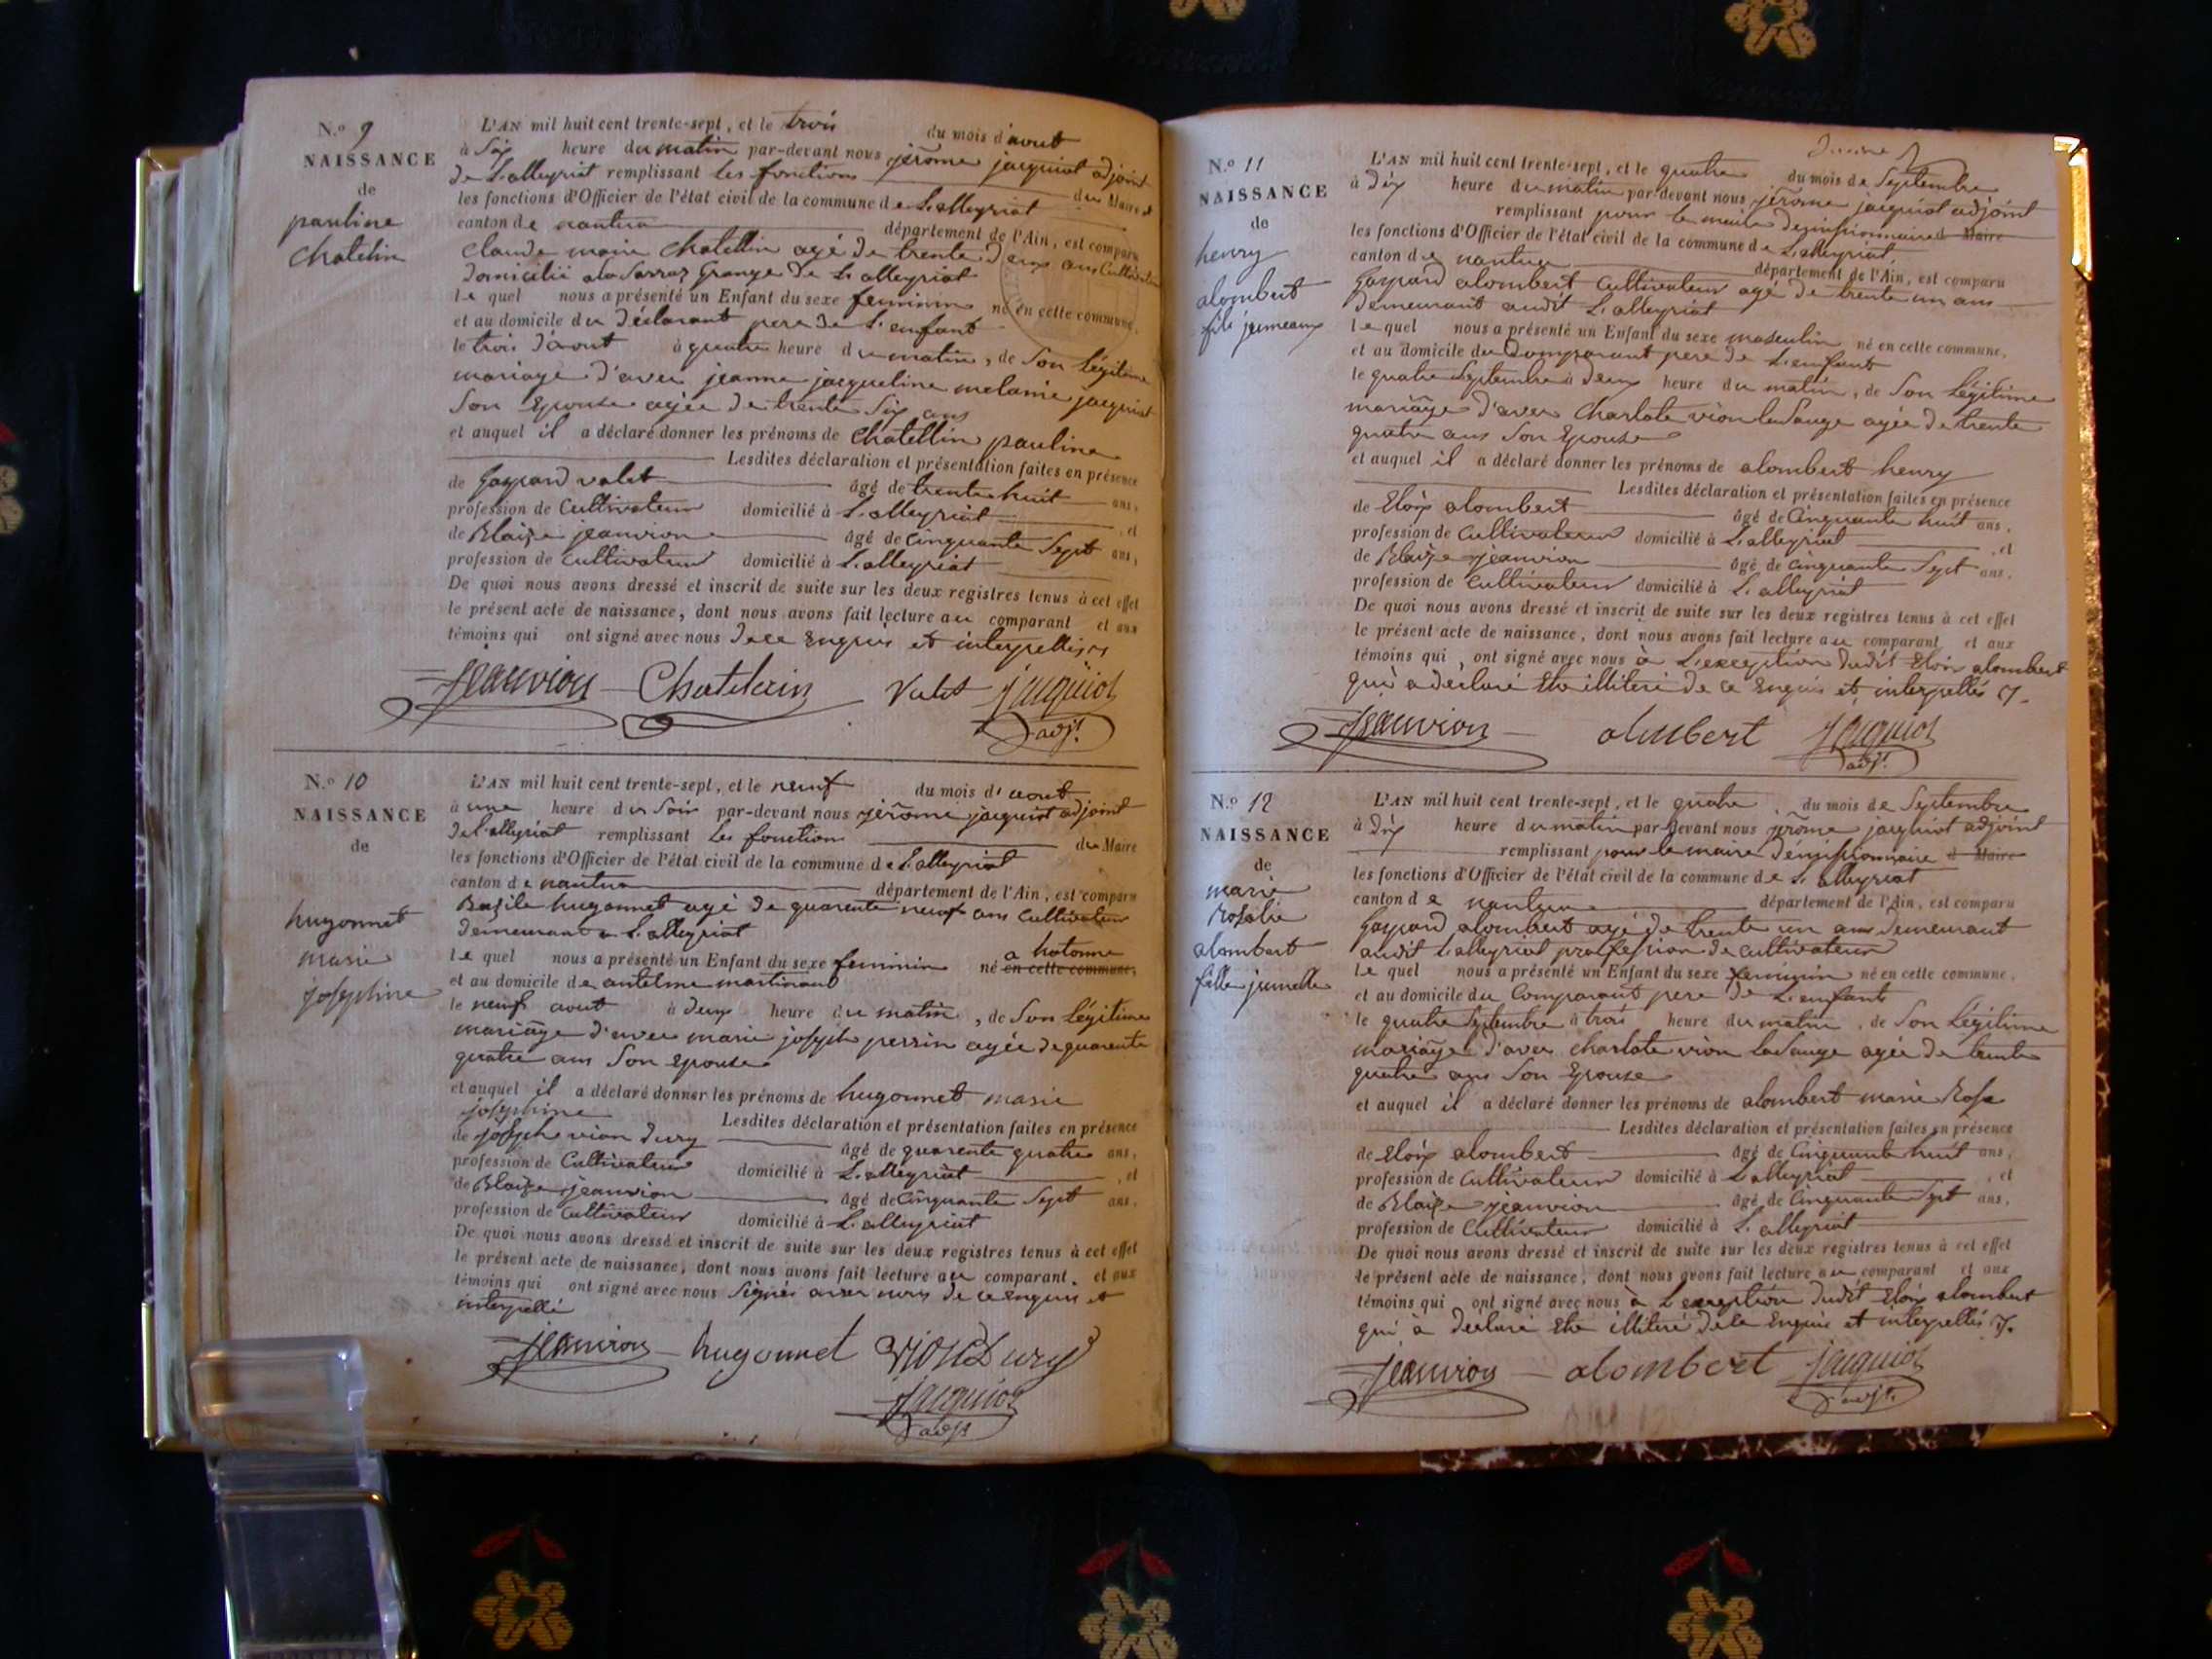 N.o 9
NAISSANCE
de
pauline
Chatelin
L'AN mil huit cent trente-sept, et le trois du mois d'aout
à Six heure du matin par-devant nous jerome jacquiot adjoint
de L'alleyriat remplissant les fonctions du Maire
les fonctions d'Officier de l'état civil de la commune de L'alleyriat
canton de nantua département de l'Ain, est comparu
Claude marie Chatellin agé de trente Deux ans Cultivateur
domicilié a la Sarraz Grange de L'alleyriat
le quel nous a présenté un Enfant du sexe feminin né en cette commune,
et au domicile du déclarant pere de L'enfant
le trois d'aout à quatre heure du matin, de Son Légitime
mariage d'avec jeanne jacqueline melanie jacquiot
Son Epouse agée de trente Six ans
et auquel il a déclaré donner les prénoms de Chatellin pauline
Lesdites déclaration et présentation faites en présence
de Gaspard valet âgé de trente huit ans,
profession de Cultivateur domicilié à L'alleyriat et
de Blaize jeanvion âgé de Cinquante Sept ans,
profession de Cultivateur domicilié à L'alleyriat
De quoi nous avons dressé et inscrit de suite sur les deux registres tenus à cet effet
le présent acte de naissance, dont nous avons fait lecture au comparant et aux
témoins qui ont signé avec nous de ce Enquis et interpellés
Jeanvion Chatelain Valet Jacquiot
adjt.
N.o 10
NAISSANCE
de
hugonnet
marie
josephine
L'AN mil huit cent trente-sept, et le neuf du mois d'aout
à une heure du Soir par-devant nous jerome jacquiot adjoint
de L'alleyriat remplissant les fonction du Maire
les fonctions d'Officier de l'état civil de la commune de L'alleyriat
canton de nantua département de l'Ain, est comparu
Bazile hugonnet agé de quarente neuf ans Cultivateur
demeurant a L'alleyriat
le quel nous a présenté un Enfant du sexe feminin né a hotonne en cette commune,
et au domicile de antelme martinand
le neuf aout à deux heure du matin, de Son Légitime
mariage d'avec marie joseph perrin agée de quarente
quatre ans Son epouse
et auquel il a déclaré donner les prénoms de hugonnet marie
josephine Lesdites déclaration et présentation faites en présence
de joseph vion dury âgé de quarente quatre ans,
profession de Cultivateur domicilié à L'alleyriat, et
de Blaize jeanvion âgé de Cinquante Sept ans,
profession de Cultivateur domicilié à L'alleyriat
De quoi nous avons dressé et inscrit de suite sur les deux registres tenus à cet effet
le présent acte de naissance, dont nous avons fait lecture au comparant, et aux
témoins qui ont signé avec nous Signés avec nous de ce enquis et
interpellé
Jeanvion hugonnet VION Dury
Jacquiot
adjt
N.o 11
NAISSANCE
de
henry
alombert
fils jumeaux
L'AN mil huit cent trente-sept, et le quatre du mois de Septembre
à dix heure du matin par-devant nous jerome jacquiot adjoint
remplissant pour le maire demissionnaire d Maire
les fonctions d'Officier de l'état civil de la commune de L'alleyriat
canton de nantua département de l'Ain, est comparu
Gaspard alombert Cultivateur agé de trente un ans
demeurant audit L'alleyriat
le quel nous a présenté un Enfant du sexe masculin né en cette commune,
et au domicile du Comparant pere de L'enfant
le quatre Septembre à deux heure du matin, de Son Légitime
mariage d'avec Charlote vion laSauge agée de trente
quatre ans Son Epouse
et auquel il a déclaré donner les prénoms de alombert henry
Lesdites déclaration et présentation faites en présence
de Eloix alombert âgé de Cinquante huit ans,
profession de Cultivateur domicilié à L'alleyriat, et
de Blaize jeanvion âgé de Cinquante Sept ans,
profession de Cultivateur domicilié à L'alleyriat
De quoi nous avons dressé et inscrit de suite sur les deux registres tenus à cet effet
le présent acte de naissance, dont nous avons fait lecture au comparant et aux
témoins qui, ont signé avec nous à L'exception dudit Eloix alombert
qui a declaré Etre illiteré de ce Enquis et interpellés
Jeanvion alombert Jacquiot
adjt.
N.o 12
NAISSANCE
de
marie
Rosalie
alombert
fille jumelle
L'AN mil huit cent trente-sept, et le quatre du mois de Septembre
à dix heure du matin par-devant nous jerome jacquiot adjoint
remplissant pour le maire démissionnaire d Maire
les fonctions d'Officier de l'état civil de la commune de L'alleyriat
canton de nantua département de l'Ain, est comparu
Gaspard alombert agé de trente un ans demeurant
audit L'alleyriat proffession de Cultivateur
le quel nous a présenté un Enfant du sexe feminin né en cette commune,
et au domicile du Comparant pere de L'enfant
le quatre Septembre à trois heure du matin, de Son Légitime
mariage d'avec charlote vion laSauge agée de trente
quatre ans Son Epouse
et auquel il a déclaré donner les prénoms de alombert marie Rose
Lesdites déclaration et présentation faites en présence
de Eloix alombert âgé de Cinquante huit ans,
profession de Cultivateur domicilié à L'alleyriat, et
de Blaize jeanvion âgé de Cinquante Sept ans,
profession de Cultivateur domicilié à L'alleyriat
De quoi nous avons dressé et inscrit de suite sur les deux registres tenus à cet effet
le présent acte de naissance, dont nous avons fait lecture au comparant et aux
témoins qui ont signé avec nous à L'exception dudit Eloix alombert
qui à declaré Etre illiteré de ce Enquis et interpellés
Jeanvion alombert jacquiot
adjt.